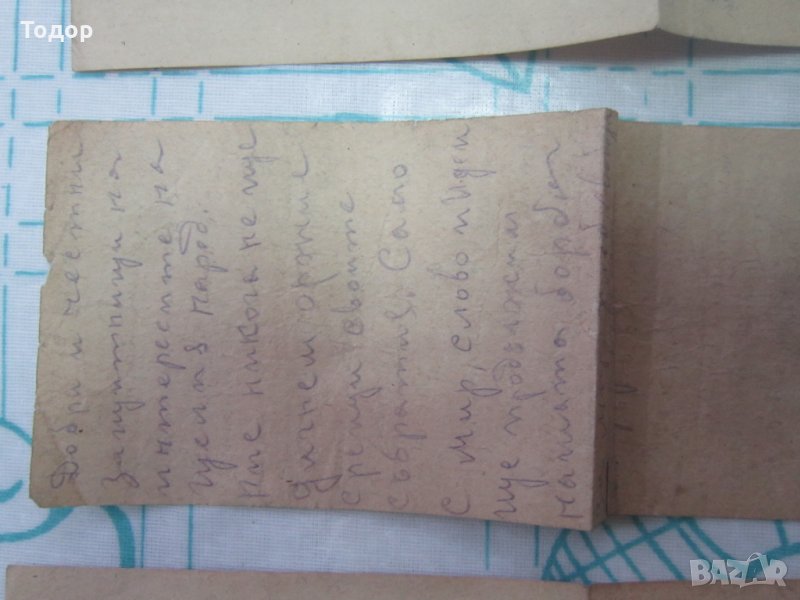 Тодор
Добри и честни
Защитници на
интересите на
целия народ.
Ние никога не ще
дигнем оръжие
срещу своите
събратия. Само
с мир, слово и идеи
ще продължим
нашата борба
BAZAR